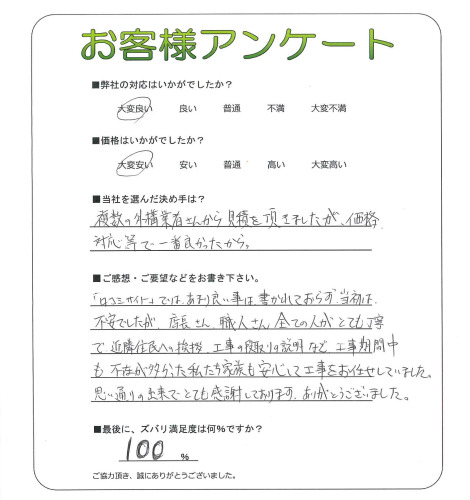 お客様アンケート
■弊社の対応はいかがでしたか？
大変良い 良い 普通 不満 大変不満
■価格はいかがでしたか？
大変安い 安い 普通 高い 大変高い
■当社を選んだ決め手は？
複数の外構業者さんから見積を頂きましたが、価格
対応等で一番良かったから。
■ご感想・ご要望などをお書き下さい。
「口コミサイト」では、あまり良い事は書かれておらず、当初は、
不安でしたが、店長さん、職人さん全ての人がとても丁寧
で近隣住民への挨拶、工事の段取りの説明など工事期間中
も不在が多かった私たち家族も安心して工事をお任せしていました。
思い通りの出来でとても感謝しております。ありがとうございました。
■最後に、ズバリ満足度は何%ですか？
100 %
ご協力頂き、誠にありがとうございました。